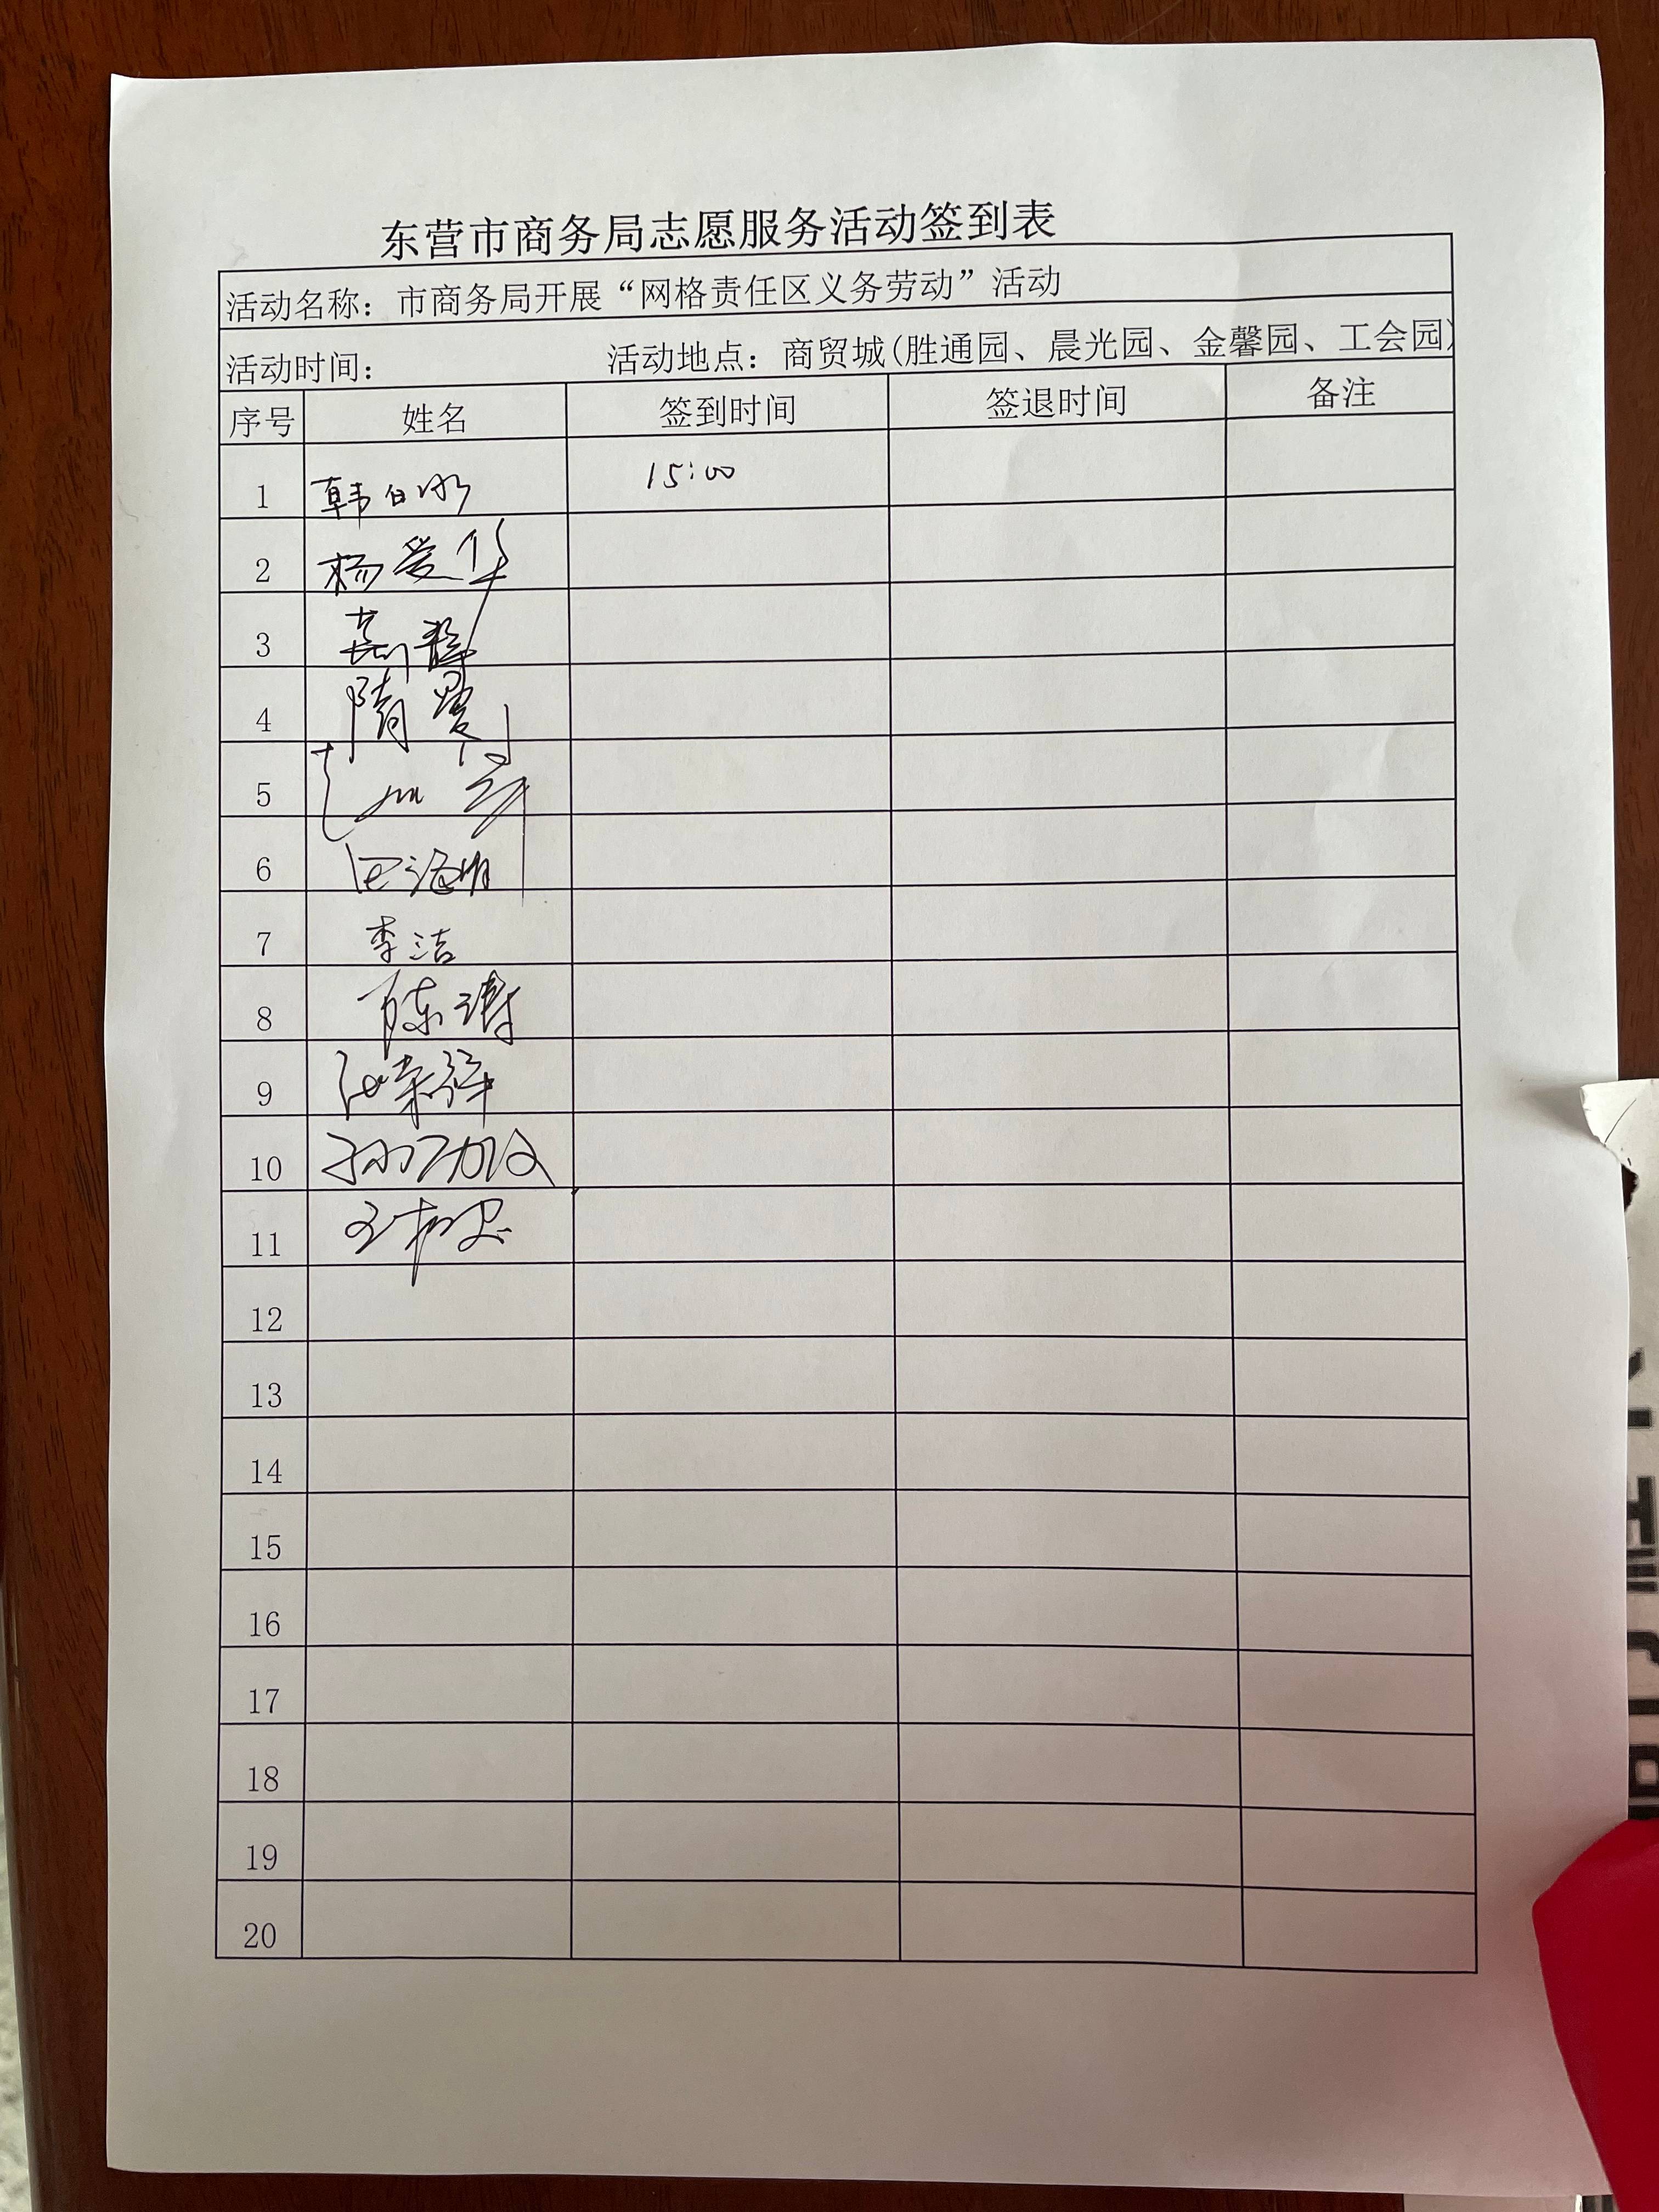 东营市商务局志愿服务活动签到表
活动名称：市商务局开展“网格责任区义务劳动”活动
活动时间： 活动地点：商贸城(胜通园、晨光园、金馨园、工会园)
序号 姓名 签到时间 签退时间 备注
1 韩白冰 15:00
2 杨爱华
3
4 隋曼
5
6
7 李洁
8 陈涛
9
10
11
12
13
14
15
16
17
18
19
20